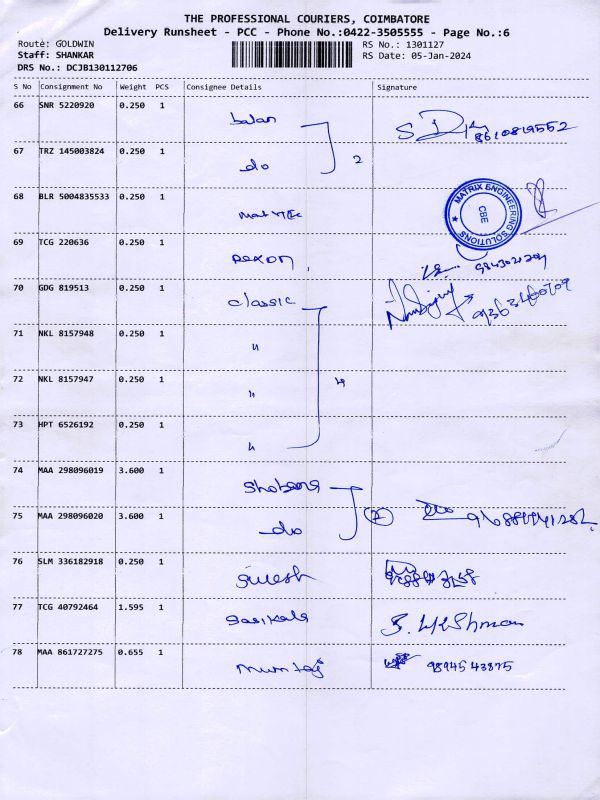 THE PROFESSIONAL COURIERS, COIMBATORE
Delivery Runsheet - PCC - Phone No.:0422-3505555 - Page No.:6
Route: GOLDWIN
RS No.: 1301127
Staff: SHANKAR
RS Date: 05-Jan-2024
DRS No.: DCJB130112706
S No Consignment No Weight PCS Consignee Details Signature
66 SNR 5220920 0.250 1 balan
8610819552
67 TRZ 145003824 0.250 1 do 2
68 BLR 5004835533 0.250 1 Matrix
MATRIX ENGINEERING SOLUTIONS ★ CBE
69 TCG 220636 0.250 1 Rexon
70 GDG 819513 0.250 1 classic
71 NKL 8157948 0.250 1 "
72 NKL 8157947 0.250 1 " 4
73 HPT 6526192 0.250 1 "
74 MAA 298096019 3.600 1 Shobana
75 MAA 298096020 3.600 1 do 2
76 SLM 336182918 0.250 1
77 TCG 40792464 1.595 1 Sasikala
78 MAA 861727275 0.655 1 Mumtaj 98945 43875